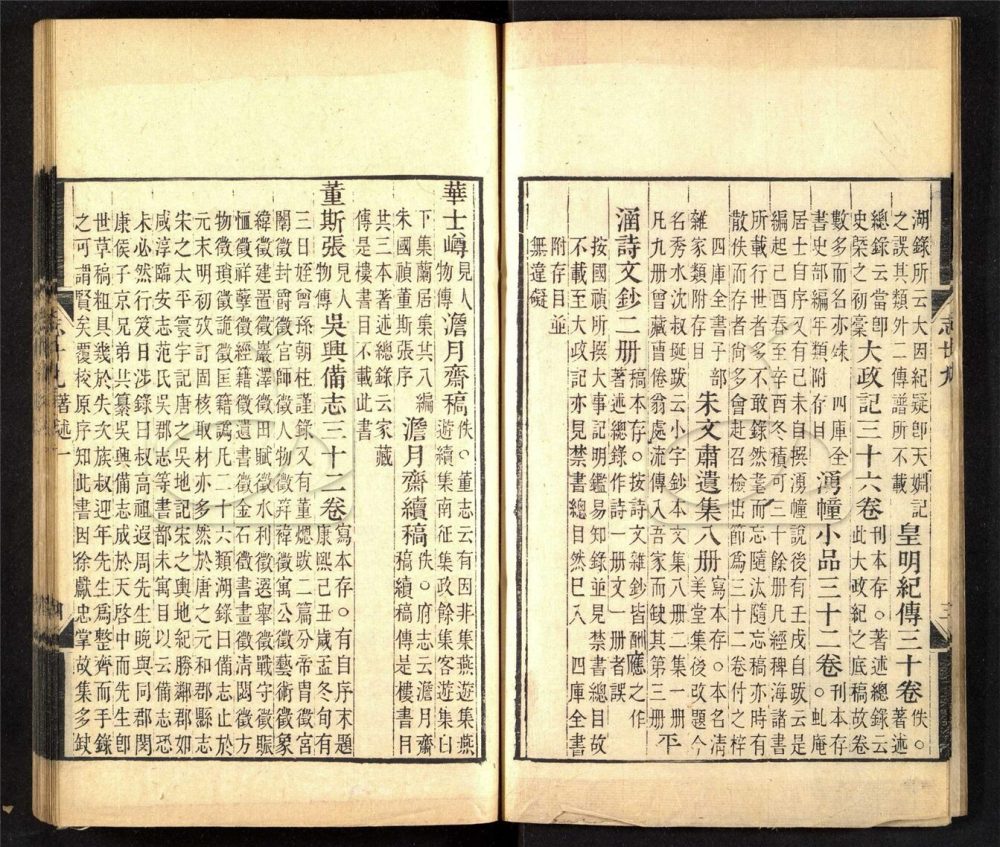 湖錄所云大因紀疑卽天嫻記之誤其類外二傳譜所不載皇明紀傳三十卷佚○著述
總錄云當卽史槩之初槀大政記三十六卷刊本存○著述總錄云此大政紀之底稿故卷
數多而名亦殊 四庫全書史部編年類附存目湧幢小品三十二卷刊本存○虬庵
居士自序又有己未自撰湧幢說後有壬戌自跋云是編起己酉春至辛酉冬積可三十餘册凡經稗海諸書
所載行世者多不敢錄然耄而忘隨汰隨忘稿亦時有散佚而存者尚多會赴召檢出節爲三十二卷付之梓
四庫全書子部雜家類附存目朱文肅遺集八册寫本存○本名淸美堂集後改題今
名秀水沈叔埏跋云小字鈔本文集八册二集一册凡九册曾藏曹倦翁處流傳入吾家而缺其第三册平
涵詩文鈔二册稿本存○按詩文雜鈔皆酬應之作著述總錄作詩一册文一册者誤
按國禎所撰大事記明鑑易知錄並見禁書總目故不載至大政記亦見禁書總目然已入 四庫全書
附存目並無違礙
志卅九
華士㠔見人物傳澹月齋稿佚○董志云有因非集燕遊集燕遊續集南征集政餘集客遊集臼
下集蘭居集共八編朱國禎董斯張序澹月齋續稿佚○府志云澹月齋稿續稿傳是樓書目
共三本著述總錄云家藏傳是樓書目不載此書
董斯張見人物傳吳興備志三十二卷寫本存○有自序末題康熙己丑歲孟冬旬有
三日姪曾孫朝柱謹錄又有董熜敬二篇分帝胄徵宮闈徵封爵徵官師徵人物徵笄褘徵寓公徵藝術徵象
緯徵建置徵巖澤徵田賦徵水利徵選舉徵戰守徵賑恤徵祥孽徵經籍徵遺書徵金石徵書畫徵淸閟徵方
物徵瑣徵詭徵匡籍徵凡二十六類湖錄曰備志止於元末明初攷訂固核取材亦多然於唐之元和郡縣志
宋之太平寰宇記唐之吳地記宋之輿地紀勝鄰郡如咸淳臨安志范氏吳郡志等書都未寓目以云備志恐
未必然行笈日涉錄曰叔高祖遐周先生晚與同郡閔康侯子京兄弟共纂吳興備志成於天啓中而先生卽
世草稿粗具幾於失次族叔迎年先生爲整齊而手錄之可謂賢矣覆校原序知此書因徐獻忠掌故集多缺
志卅九 著述一